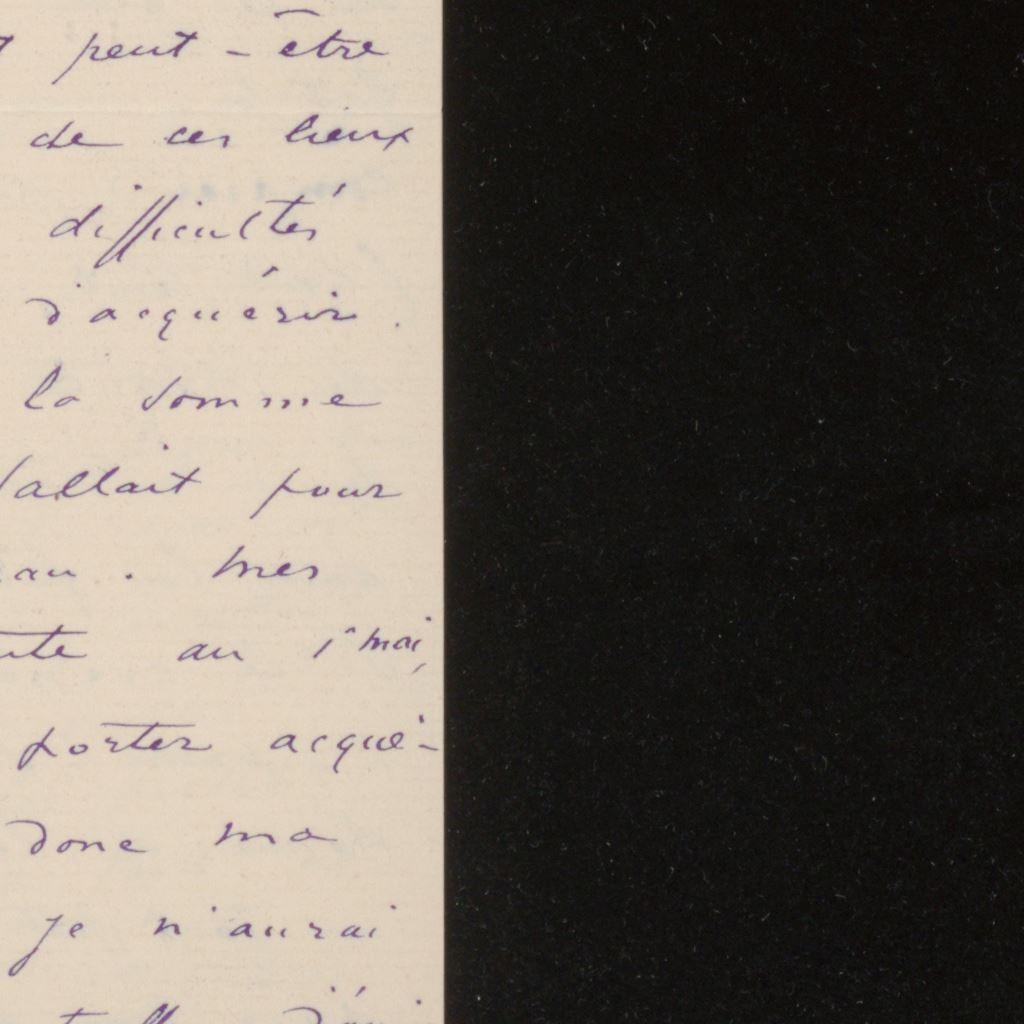 peut-être
de ces lieux
difficultés
d'acquérir.
la somme
fallait pour
mes
au 1er mai,
porter acqué-
donc ma
je n'aurai